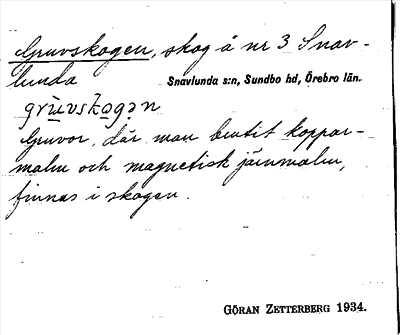 Gruvskogen, skog å nr 3 Snav-
lunda
Snavlunda s:n, Sundbo hd, Örebro län.
grùvskogən
Gruvor, där man brutit koppar-
malm och magnetisk järnmalm,
finnas i skogen.
GÖRAN ZETTERBERG 1934.